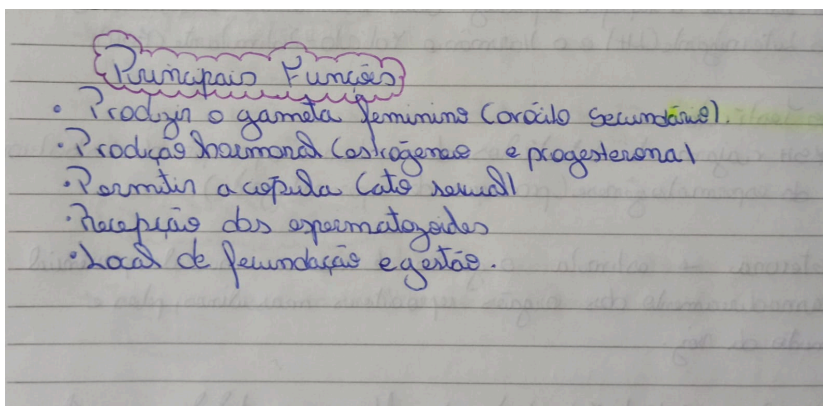 Principais Funções
• Produzir o gameta feminino (ovócito secundário).
• Produção hormonal (estrógenos e progesterona)
• Permitir a cópula (ato sexual)
• Recepção dos espermatozoides
• Local de fecundação e gestão.